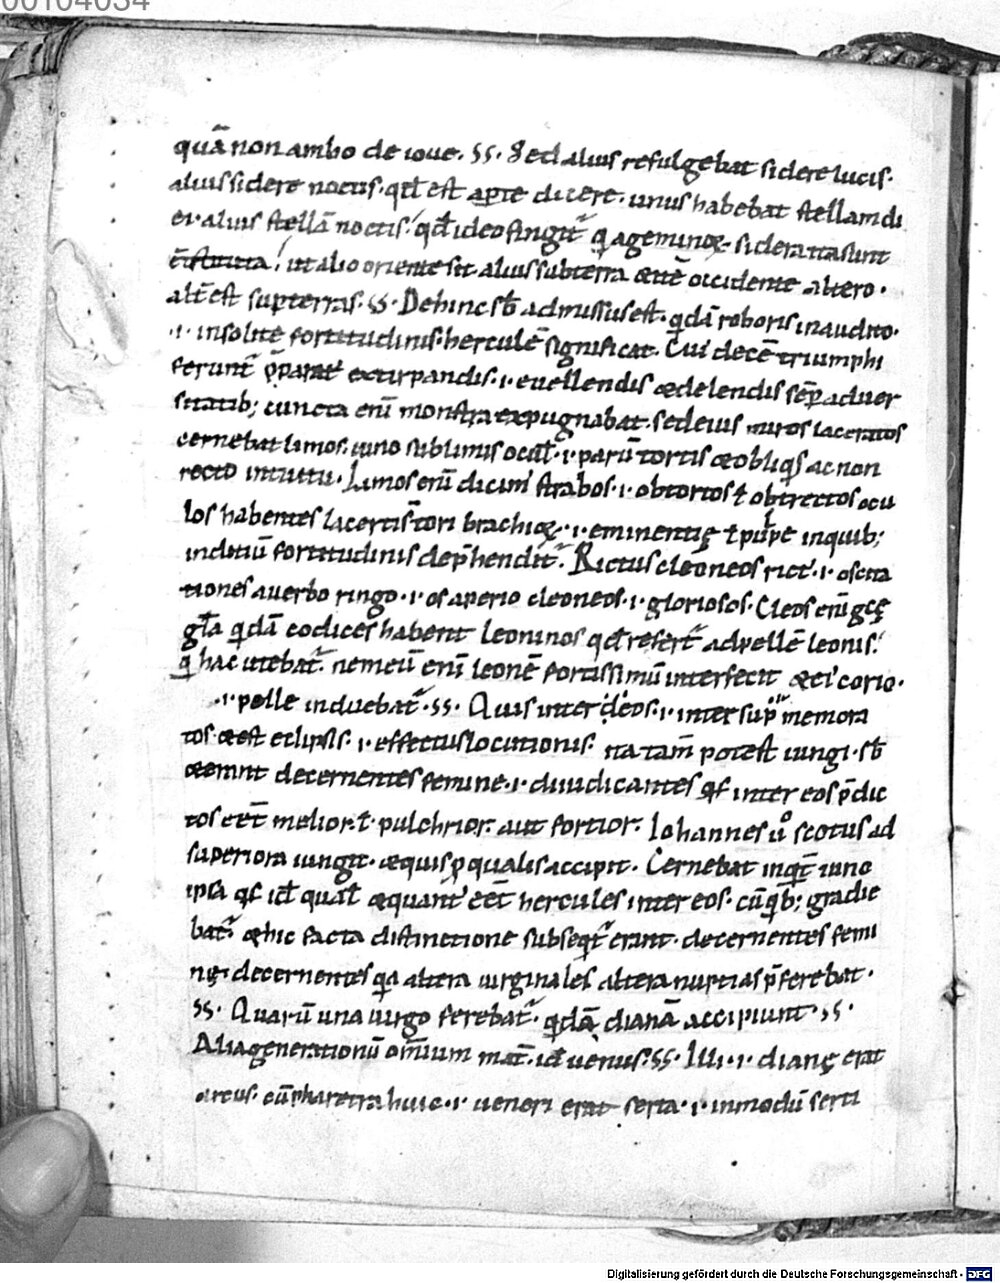 00104034
quā non ambo de ioue. SS. Sed alius refulgebat sidere lucis.
alius sidere noctis. qđ est apte dicere. unus habebat stellam di
ei alius stellā noctis. qđ ideo fingit̃ q̃a geminoꝝ sidera ita sunt
ut alio oriente sit alius sub terra occidente altero.
alt̃ est sup terras. SS. Dehinc sb̃ admissus est. qđā roboris inaudito.
.i. insolite fortitudinis. herculē significat. Cui decē triumphi
ferunt̃ extirpandis .i. euellendis & delendis sēp aduer
sitatib; cuncta enī monstra expugnabat. sed eius miros lacertos
cernebat limos. iuno sublimis ocul̃ .i. parū tortis & obliq̃s ac non
recto intuitu. Limos enī dicim̃ strabos .i. obtortos ł obtrectos ocu
los habentes lacertis tori brachioꝝ .i. eminentię ł pulpe in quib;
inditiū fortitudinis dep̃hendit̃. Rictus cleoneos rict̃ .i. oscita
tiones a uerbo ringo .i. os aperio cleoneos .i. gloriosos. Cleos enī gcę
gła qđā codices habent leoninos qđ refert̃ ad pellē leonis.
q̃ hac utebat̃. nemeū enī leonē fortissimū interfecit & ei corio.
.i. pelle induebat̃. SS. Quis inter deos .i. inter sup̃ memora
tos & est eclipsis .i. effectus locutionis. ita tam̃ potest iungi. sb̃
decernentes femine .i. diiudicantes q̃s inter eos p̃dic
tos eēt melior. ł pulchrior. aut fortior. Iohannes ũ scotus ad
superiora iungit. & quis p qualis accipit. Cernebat inq̃t iuno
ipsa q̃s id qual̃ eēt hercules inter eos. cū q̃b; igradie
bat̃. & hic facta distinctione subseqt̃ erant. decernentes femi
nę. decernentes q̃a altera uirginales altera nuptias p̃ferebat.
SS. Quarū una uirgo ferebat̃. qđā dianā accipiunt. SS.
Alia generationū omium mat̃. id uenus. SS. Illi .i. dianę erat
arcus. cū pharetra huic .i. ueneri erat serta .i. in modū serti
Digitalisierung gefördert durch die Deutsche Forschungsgemeinschaft - DFG